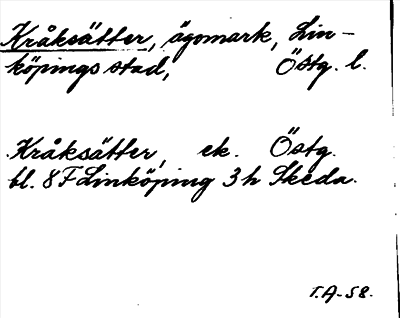 Kråksätter, ägomark, Lin-
köpings stad, Östg. l.
Kråksätter, ek. Östg.
bl. 8F Linköping 3h Skeda.
T.A-58.